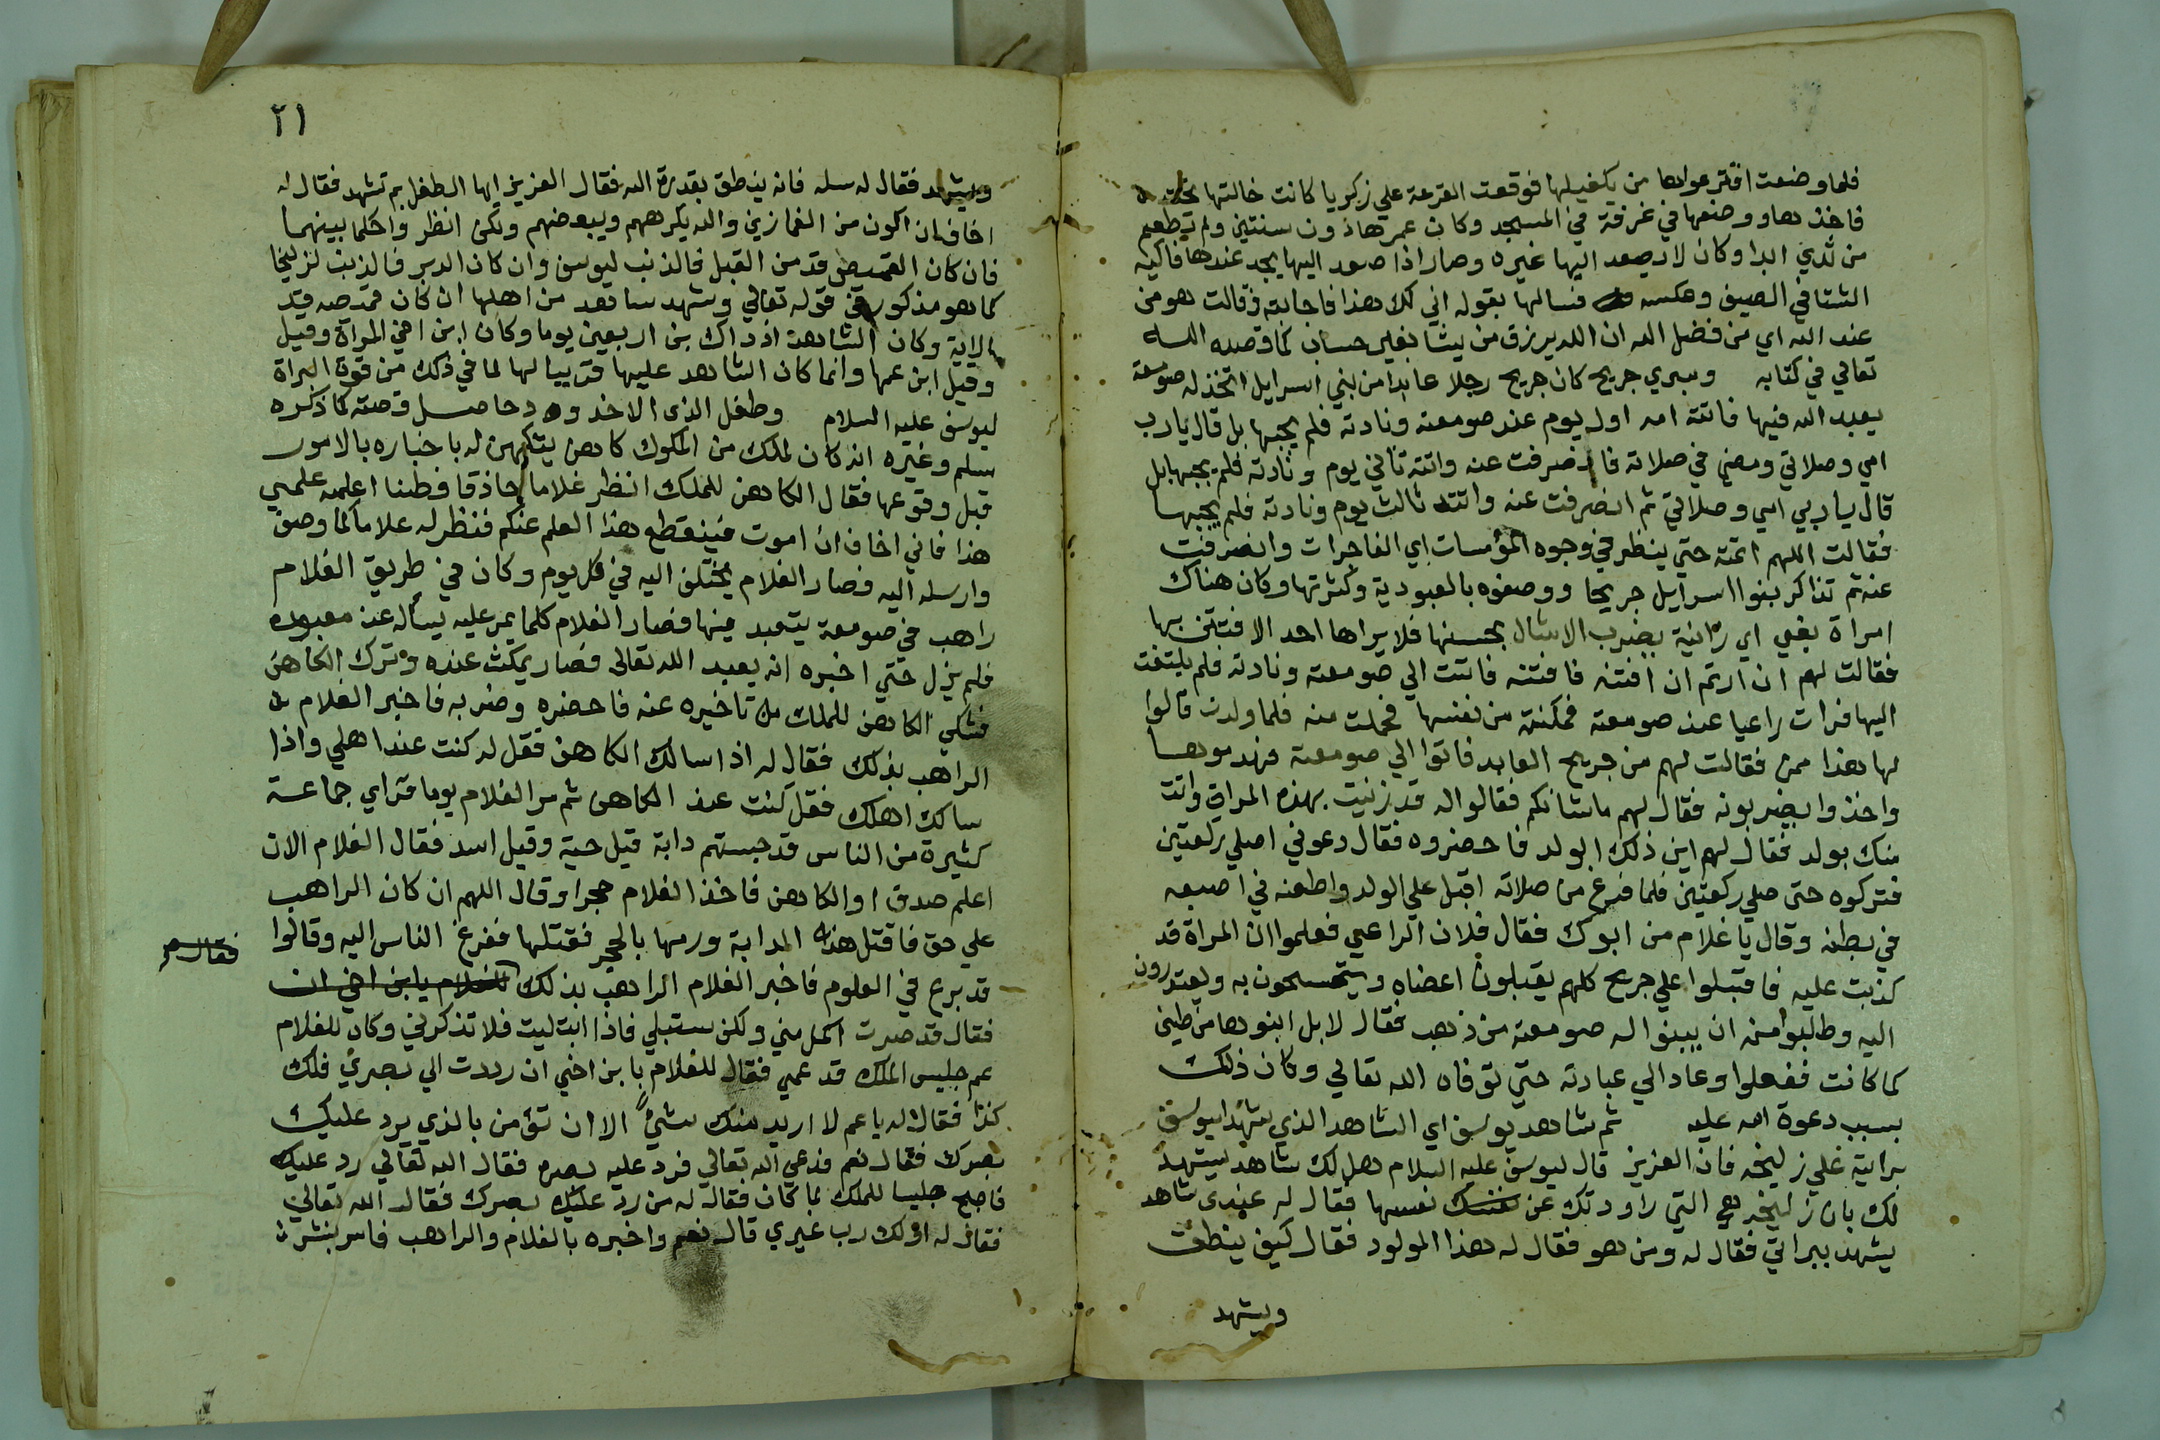 فلما وضعت اقترعوا هم من يكفيلها فوقعت القرعة علي زكريا كانت خالتها تحته
فاخذها ووضعها في غرفة في المسجد وكان عمرها دون سنتين ولم تطعم
من ثدي ابدا وكان لا يصعد اليها غيره وصار اذا صعد اليها يجد عندها فاكهة
الشتا في الصيف وعكسه فسالها بقوله اني لك هذا فاجابته وقالت هو من
عند الله اي من فضل الله ان الله يرزق من يشا بغير حساب كما قصه الله
تعالي في كتابه وسبري جريج كان جريج رجلا عابدا من بني اسرايل اتخذ له صومعة
يعبد الله فيها فاتته امه اول يوم عند صومعته ونادته فلم يجبها بل قال يارب
امي وصلاتي ومضي في صلاته فانصرفت عنه واتته ثاني يوم ونادته فلم يجبها بل
قال يا ربي امي وصلاتي ثم انصرفت عنه واتته ثالث يوم ونادته فلم يجبها
فقالت اللهم لا تمته حتي ينظر في وجوه المؤمسات اي الفاجرات وانصرفت
عنه ثم تذاكر بنوا اسرايل جريجا ووصفوه بالعبودية وكثرتها وكان هناك
امراة بغي اي زانية يضرب الامثال بحسنها فلا يراها احد الا فتتن بها
فقالت لهم ان اردتم ان افتنه فافتنه فاتت الي صومعته ونادته فلم يلتفت
اليها فرات راعيا عند صومعته فمكنته من نفسها فحملت منه فلما ولدت قالوا
لها هذا ممن فقالت لهم من جريج العابد فاتوا الي صومعته فهدموها
واخذوا يضربونه فقال لهم ماشانكم فقالوا له قد زنيت بهذه المراة واتت
منك بولد فقال لهم اين ذلك الولد فاحضروه فقال دعوني اصلي ركعتين
فتركوه حتي صلي ركعتين فلما فرغ من صلاته اقبل علي الولد واطعنه في اصبعه
في بطنه وقال يا غلام من ابوك فقال فلان الراعي فعلموا ان المراة قد
كذبت عليه فاقبلوا علي جريج كلهم يقبلون اعضاه ويتمسحون به ويعتدرون
اليه وطالبوا منه ان يبنوا له صومعته من ذهب فقال لا بل ابنوها من طين
كما كانت ففعلوا وعاد الي عبادته حتي توفاه الله تعالي وكان ذلك
بسبب دعوة امه عليه ثم شاهد يوسف اي الشاهد الذي شهد ليوسف
براتيه علي زليخه فان العزيز قال ليوسف عليه السلام هل لك شاهد ليشهد
لك بان زليخه هي التي راودتك عن نفسها فقال له عندي شاهد
يشهد ببراتي فقال له ومن هو فقال له هذا المولود فقال كيف ينطق
ويشهد
٢١
ويشهد فقال له سله فانه ينطق بقدرة الله فقال العزيز ايها الطفل بم تشهد فقال له
اخاف ان اكون من الغمازين والله يكرههم ويبعضهم ولكن انظر واحكما بينهما
فان كان القميص قد من القبل فالذنب ليوسف وان كان الدبر فالذنب لزليخا
كما هو مذكور في قوله تعالي وشهد شاهد من اهلها ان كان قميصه قد
الاية وكان الشاهد اذ داك بن اربعين يوما وكان ابن اخي المراة وقيل
وقيل ابن عمها وانما كان الشاهد عليها قريبا لها لما في ذلك من قوة البراة
ليوسف عليه السلام وطفل الذي الاخدود حاصل قصته كما ذكره
مسلم وغيره انه كان لملك من الملوك كاهن يتكهن له باخباره بالامور
قبل وقوعها فقال الكاهن للملك انظر غلاما حاذقا فطنا اعلمه علمي
هذا فاني اخاف ان اموت فينقطع هذا العلم عنكم فنظر له غلاما كما وصف
وارسله اليه فصار الغلام يختلف اليه في كل يوم وكان في طريق الغلام
راهب في صومعة يتعبد فيها فصار الغلام كلما يمر عليه يساله عن معبوده
فلم يزل حتي اخبره انه يعبد الله تعالي فصار يمكث عنده وترك الكاهن
فشكي الكاهن للملك من تاخيره عنه فاحضره وضربه فاخبر الغلام
الراهب بذلك فقال له اذا سالك الكاهن فقل له كنت عند اهلي واذا
سالك اهلك فقل كنت عند الكاهن ثم مر الغلام يوما فراي جماعة
كثيرة من الناس قد حبستهم دابة قيل حية وقيل اسد فقال الغلام الان
اعلم صدق او الكاهن فاخذ الغلام حجرا وقال اللهم ان كان الراهب
علي حق فاقتل هذه الدابة ورمها بالحجر فقتلها ففرغ الناس اليه وقالوا
قد برع في العلوم فاخبر الغلام الراهب بذلك للغلام يا بن اخي ان
فقال قد صرت اكمل مني ولكن ستبلي فاذا ابتليت فلا تذكرني وكان للغلام
عم جليس الملك قد عمي فقال للغلام يا بن اخي ان رددت الي بصري فلك
كذا فقال له يا عم لا اريد منك شيئ الا ان تؤمن بالذي يرد عليك
بصرك فقال نعم فدعي الله تعالي فرد عليه بصره فقال الله تعالي رد عليك
فاصبح جليسا للملك بما كان فقال له من رد عليك بصرك فقال الله تعالي
فقال له اولك رب غيري قال نعم واخبره بالغلام والراهب فامر بنشره